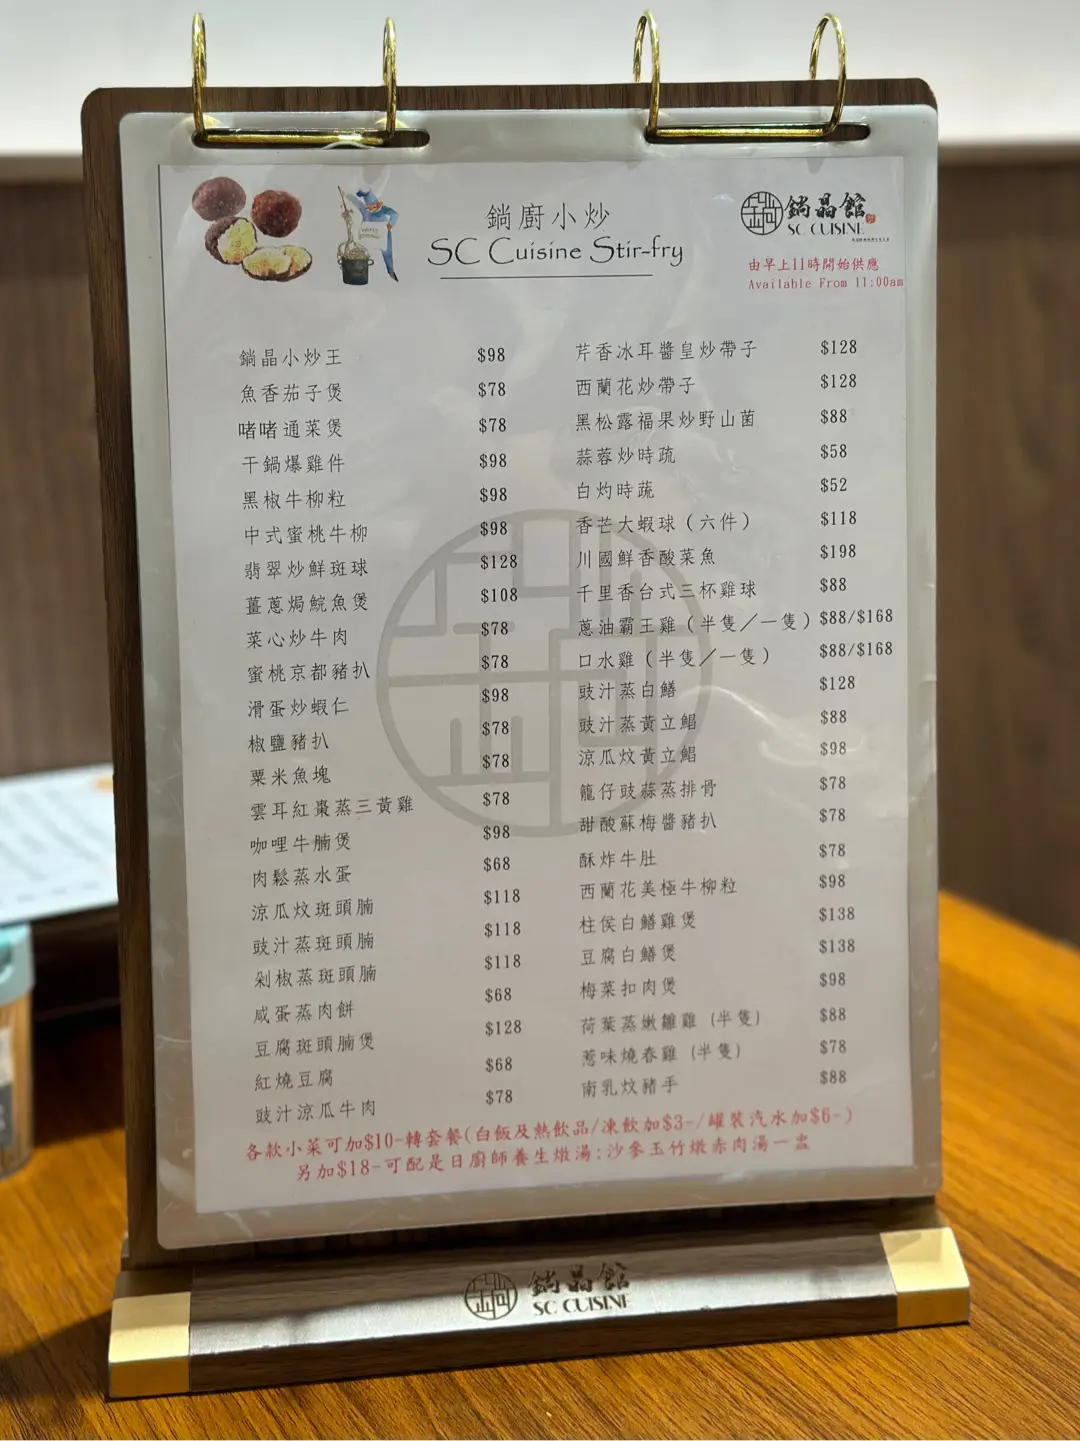 鎬廚小炒
SC Cuisine Stir-fry
鎬晶館
SC CUISINE
由早上11時開始供應
Available From 11:00am
鎬晶小炒王 $98
魚香茄子煲 $78
啫啫通菜煲 $78
干鍋爆雞件 $98
黑椒牛柳粒 $98
中式蜜桃牛柳 $98
翡翠炒鮮斑球 $128
薑蔥焗鯇魚煲 $108
菜心炒牛肉 $78
蜜桃京都豬扒 $78
滑蛋炒蝦仁 $98
椒鹽豬扒 $78
粟米魚塊 $78
雲耳紅棗蒸三黃雞 $78
咖哩牛腩煲 $98
肉鬆蒸水蛋 $68
涼瓜炆斑頭腩 $118
豉汁蒸斑頭腩 $118
剁椒蒸斑頭腩 $118
咸蛋蒸肉餅 $68
豆腐斑頭腩煲 $128
紅燒豆腐 $68
豉汁涼瓜牛肉 $78
芹香冰耳醬皇炒帶子 $128
西蘭花炒帶子 $128
黑松露福果炒野山菌 $88
蒜蓉炒時疏 $58
白灼時蔬 $52
香芒大蝦球（六件） $118
川國鮮香酸菜魚 $198
千里香台式三杯雞球 $88
蔥油霸王雞（半隻／一隻） $88/$168
口水雞（半隻／一隻） $88/$168
豉汁蒸白鱔 $128
豉汁蒸黃立鯧 $88
涼瓜炆黃立鯧 $98
籠仔豉蒜蒸排骨 $78
甜酸蘇梅醬豬扒 $78
酥炸牛肚 $78
西蘭花美極牛柳粒 $98
柱侯白鱔雞煲 $138
豆腐白鱔煲 $138
梅菜扣肉煲 $98
荷葉蒸嫩雛雞 (半隻) $88
惹味燒春雞 (半隻) $78
南乳炆豬手 $88
各款小菜可加$10-轉套餐(白飯及熱飲品/凍飲加$3-/罐裝汽水加$6-)
另加$18-可配是日廚師養生燉湯:沙參玉竹燉赤肉湯一盅
鎬晶館
SC CUISINE